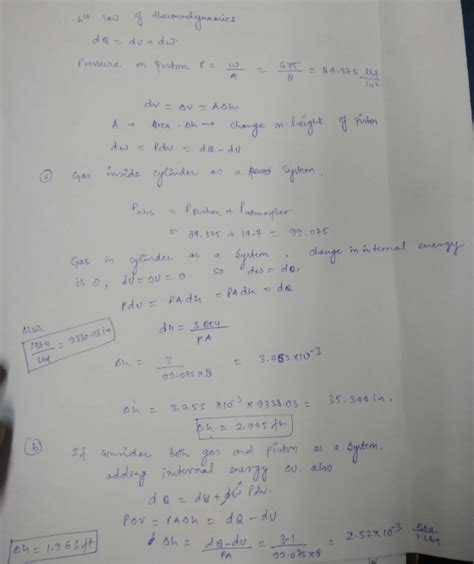 1st law of thermodynamics
dQ = dU + dW
Pressure on Piston P = W/A = 675/8 = 84.375 lbf/in²
dv = Δv = AΔh
A → Area. Δh → change in height of Piston
dw = Pdv = dQ - dU
(a) Gas inside cylinder as a System.
Pabs = Ppiston + Patmospher
= 84.375 + 14.7 = 99.075
Gas in cylinder as a System, change in internal energy
is 0, dU = ΔU = 0 so dw = dQ.
Pdv = PAdh = PAdh = dQ
Also
1Btu/lbf = 9338.03 in
dh = 3Btu/PA
Δh = 3/99.075×8 = 3.785 ×10⁻³
Δh = 3.755 ×10⁻³ × 9338.03 = 35.344in.
Δh = 2.945 ft
(b) If consider both gas and piston as a System.
adding internal energy also
dQ = dU + dw Pdv.
PΔV = PAΔh = dQ - dU
Δh = dQ-dU/PA = 3-1/99.075×8 = 2.52×10⁻³
Δh = 1.963 ft